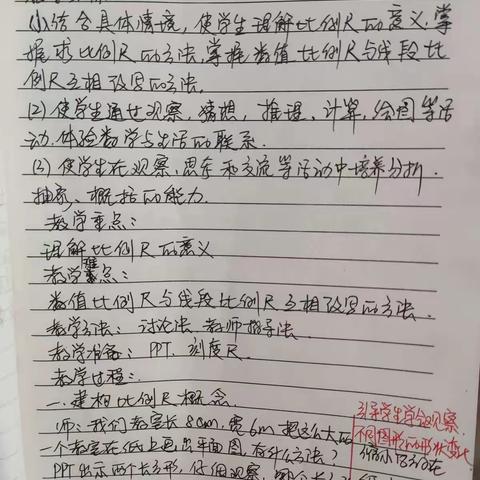 (1)结合具体情境，使学生理解比例尺的意义.掌
握求比例尺的方法.掌握数值比例尺与线段比
例尺互相改写的方法.
(2)使学生通过观察，猜想，推理、计算，绘图等活
动.体验数学与生活的联系.
(3)使学生在观察、思考和交流等活动中培养分析.
抽象、概括的能力.
教学重点：
理解比例尺的意义
教学难点：
数值比例尺与线段比例尺互相改写的方法.
教学方法：讨论法.教师指导法.
教学准备：PPT.刻度尺.
教学过程：
一.建构比例尺概念.
师：我们教室长8cm，宽6m.把这么大的
一个教室在纸上画出平面图，有什么方法？
PPT出示两个长方形，仔细观察，
引导学生学会观察.
图形的形状